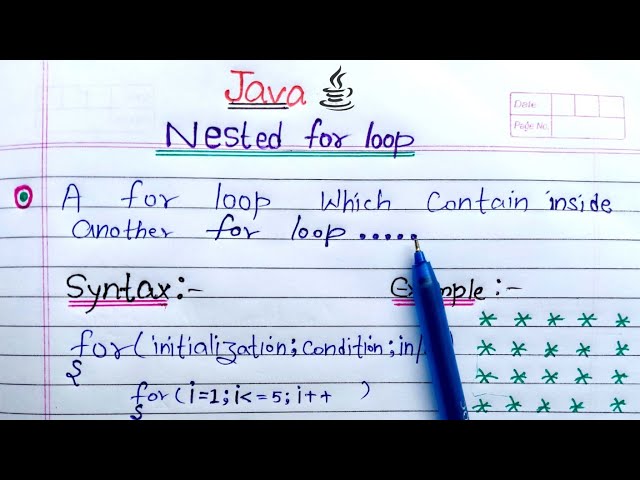 Java
Date
Page No.
Nested for loop
A for loop Which Contain inside
another for loop .....
Syntax:-
Example:-
for(initialization; Condition; in/
{
for(i=1; i<=5; i++ )
{
* * * * *
* * * * *
* * * * *
* * * * *